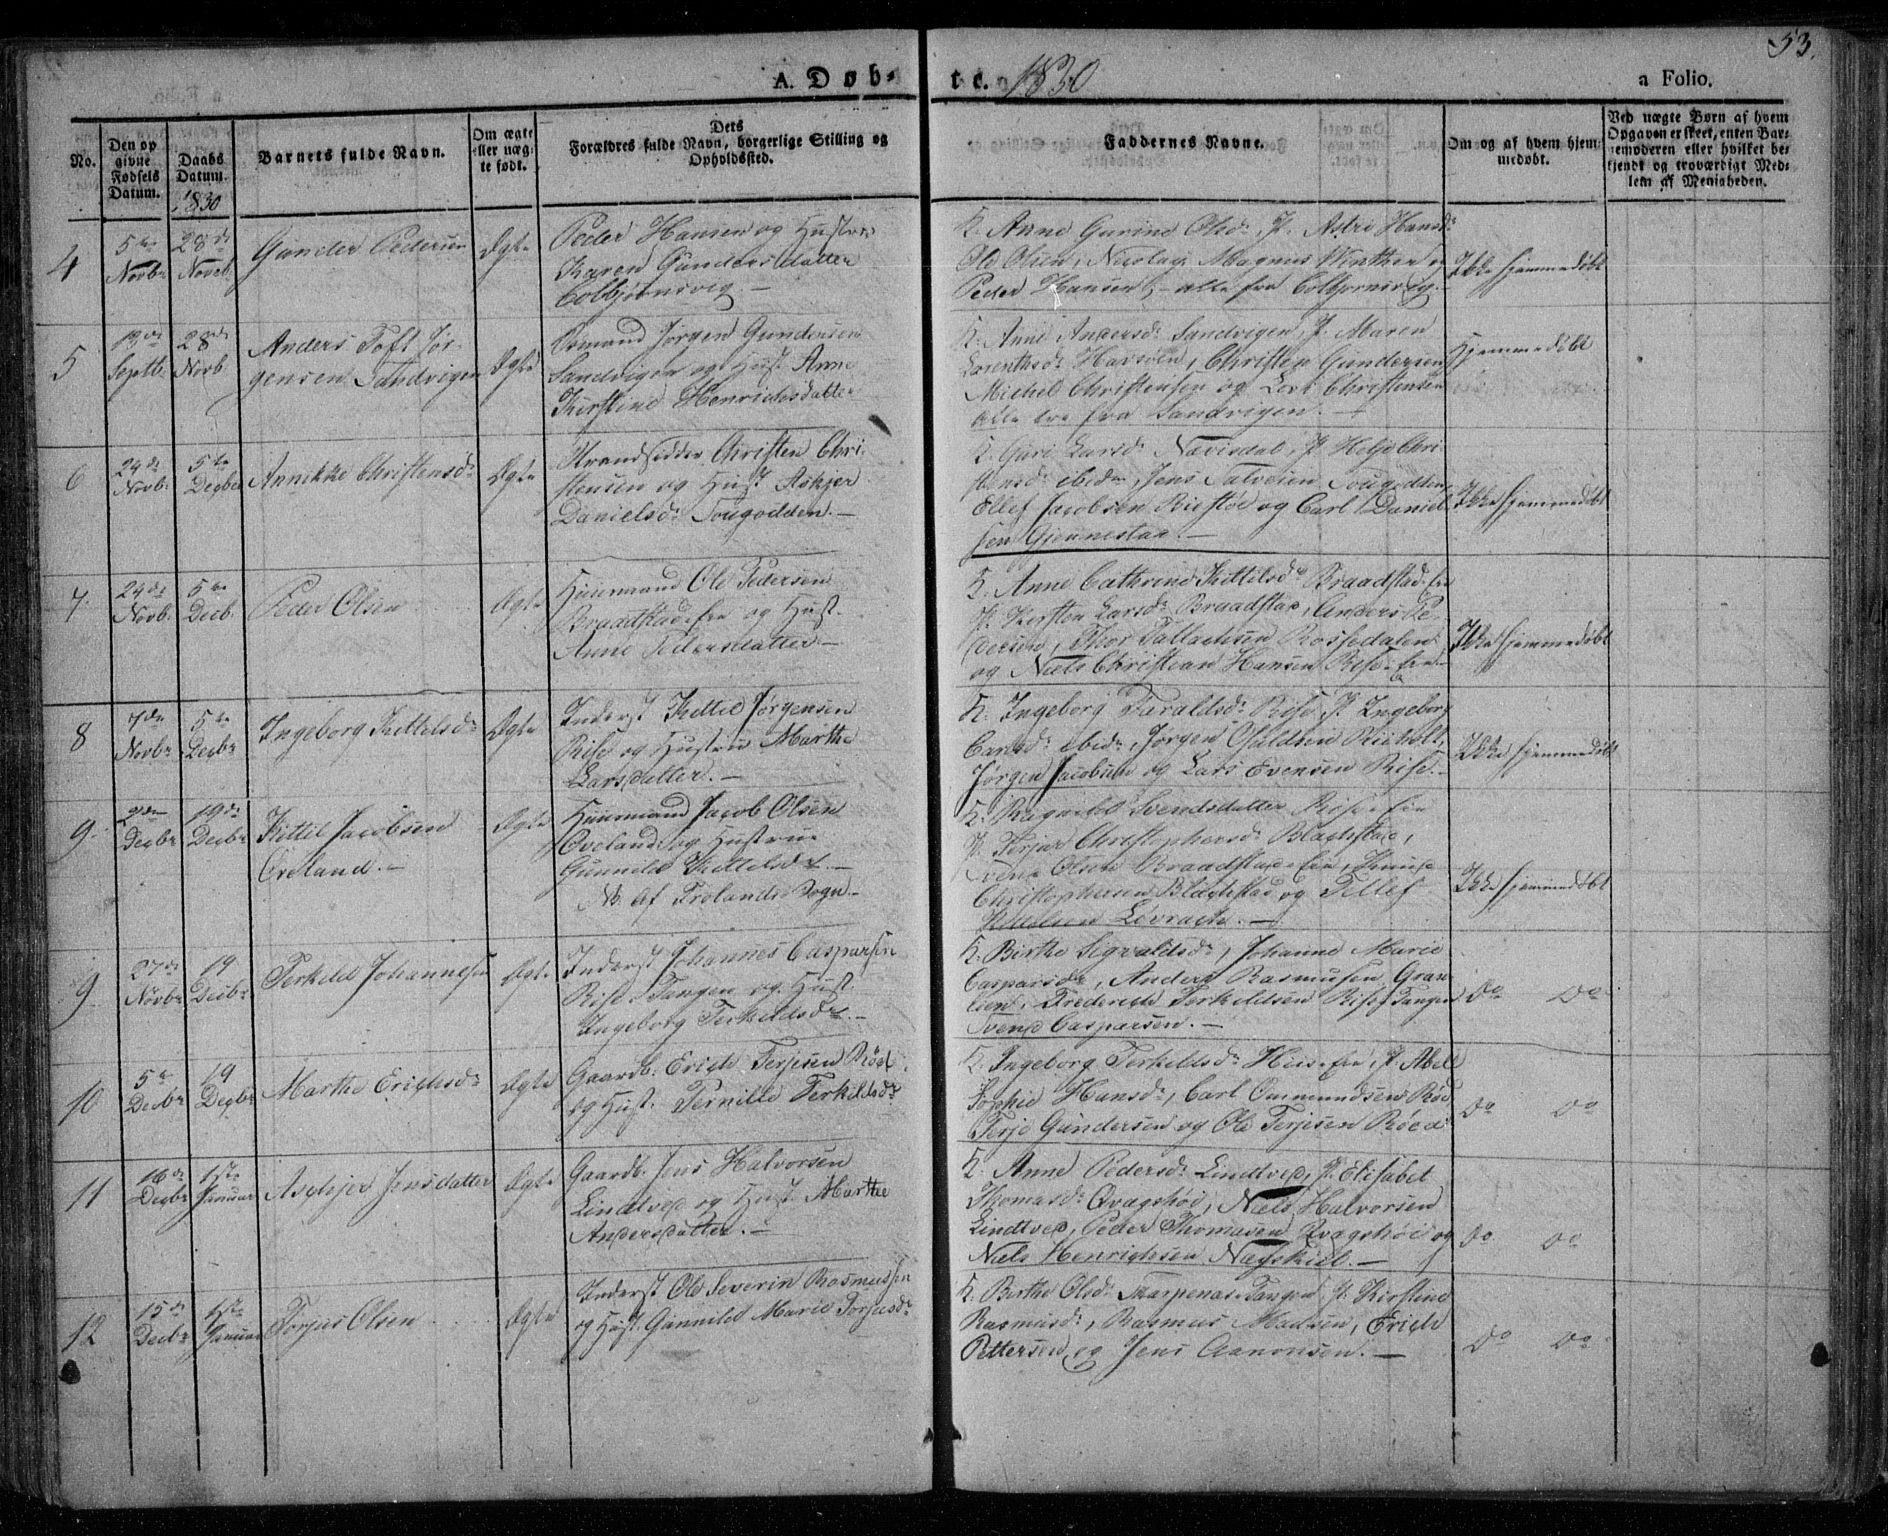 53.
A. Døb-
te. 1830
a Folio.
No.
Den op
givne
Fødsels
Datum.
Daabs
Datum.
1830
Barnets fulde Navn.
Om ægte
eller uæg-
te født.
Dets
Forældres fulde Navn, borgerlige Stilling og
Opholdssted.
Faddernes Navne.
Om og af hvem hjem-
medøbt.
Ved uægte Børn af hvem
Opgaven er skeet, enten Bar-
nemoderen eller hvilket be-
kjendt og troværdigt Med-
lem af Menigheden.
4
5te
Novbr
28de
Novb.
Gunder Pedersen
Ægte
Peder Hansen og Hustru
Karen Gundersdatter
Colbjørnsvig. —
K. Anne Gurine Olsdr, P. Astri Hansdr
Ole Olsen, Nicolay Magnus Winther og
Peder Hansen, — alle fra Colbjørnsvig. —
Ikke hjemmedøbt
5
19de
Septb.
28de
Novb.
Anders Toft Jør-
gensen Sandvigen
Ægte
Jørgen Gundersen
Sandvigen og Hust. Anne
Kirstine Henrichsdatter
K. Anne Andersdr Sandvigen, P. Maren
Lorentsdr Havsøen, Christen Gundersen
Michel Christensen og Lars Christensen
alle tre fra Sandvigen. —
Hjemmedøbt
6
24de
Novb.
5te
Decbr
Annikke Christensdr
Ægte
Strandsidder Christen Chri-
stensen og Hust. Askjer
Danielsdr Songodden. —
K. Guri Larsdr Nævisdal, P. Helje Chri-
stensdr ibidm, Jens Salvesen Songodden,
Ellef Jacobsen Biestøe og Carl Daniel-
sen Gjennestad. —
Ikke hjemmedøbt
7.
24de
Novb.
5te
Decb.
Peder Olsen
Ægte
Huusmand Ole Pedersen
Braadstad-Eie og Hust.
Anne Pedersdatter. —
K. Anne Cathrine Kittilsdr Braadstad-Eie
P. Kirsten Larsdr Braadstad, Anders Pe-
dersen, Thor Tallachsen Rossedalen
og Niels Christian Hansen Rise-Eie —
Ikke hjemmedøbt
8
7de
Novbr
5te
Decbr
Ingeborg Kittelsdr
Ægte
Inderst Kittel Jørgensen
Rise og Hustru Marthe
Larsdatter. —
K. Ingeborg Taraldsdr Rise, P. Ingeborg
Larsdr ibidm, Jørgen
Jørgen Jacobsen og Lars Evensen Rise. —
Ikke hjemmedøbt
9.
2den
Decbr
19de
Decbr
Kittil Jacobsen
Øveland. —
Ægte
Huusmand Jacob Olsen
Øveland og Hustrue
Gunnild Kittelsdr —
NB. Af Frolands Sogn. —
K. Ragnild Svendsdatter Rise-Eie
P. Terjer Christophersdr Blachstad,
Svend Olsen Braadstad-Eie, Knud
Christophersen Blachstad og Tellef
Kittelsen Løvrach. —
Ikke hjemmedøbt
9
27de
Novbr
19
Decbr
Terkeld Johannesen
Ægte
Inderst Johannes Caspersen
Rise-Tangen og Hust
Ingeborg Terkeldsdr. —
K. Birthe Sigvaldsdr, Johanne Marie
Caspersdr, Anders Rasmusen Gran-
lien, Frederich Terkeldsen Rise-Tangen
Svend Caspersen. —
Do Do
10
5te
Decbr
19
Decbr
Marthe Erichsdr
Ægte
Gaardb. Erich Terjesen Røed
og Hust. Pernille Terkildsdr
K. Ingeborg Terkeldsdr Huus-Eie, P. Abel
Sophie Hansdr, Carl Ommundsen Røe
Terje Gundersen og Ole Terjesen Røed
Do Do
11
16de
Decbr
1ste
Januar
Aschjer Jensdatter
Ægte
Gaardb. Jens Halvorsen
Lindtved og Hust Marthe
Andersdatter. —
K. Anne Pedersdr Lindtved, P. Elisabet
Thomasdr Qvagshøi, Niels Halvorsen
Lindtved, Peder Thomassen Qvagshøi og
Niels Henrichsen Næskiel. —
Do Do
12
15de
Decbr
1ste
Januar
Torjus Olsen
Ægte
Inderst Ole Severin Rasmussen
og Hust. Gunnild Marie Torjusdr
K. Birthe Olsdr Skarpenæs Tangen, P. Kirstine
Rasmusdr, Rasmus Madsen, Erich
Pettersen og Jens Aanonsen. —
Do Do